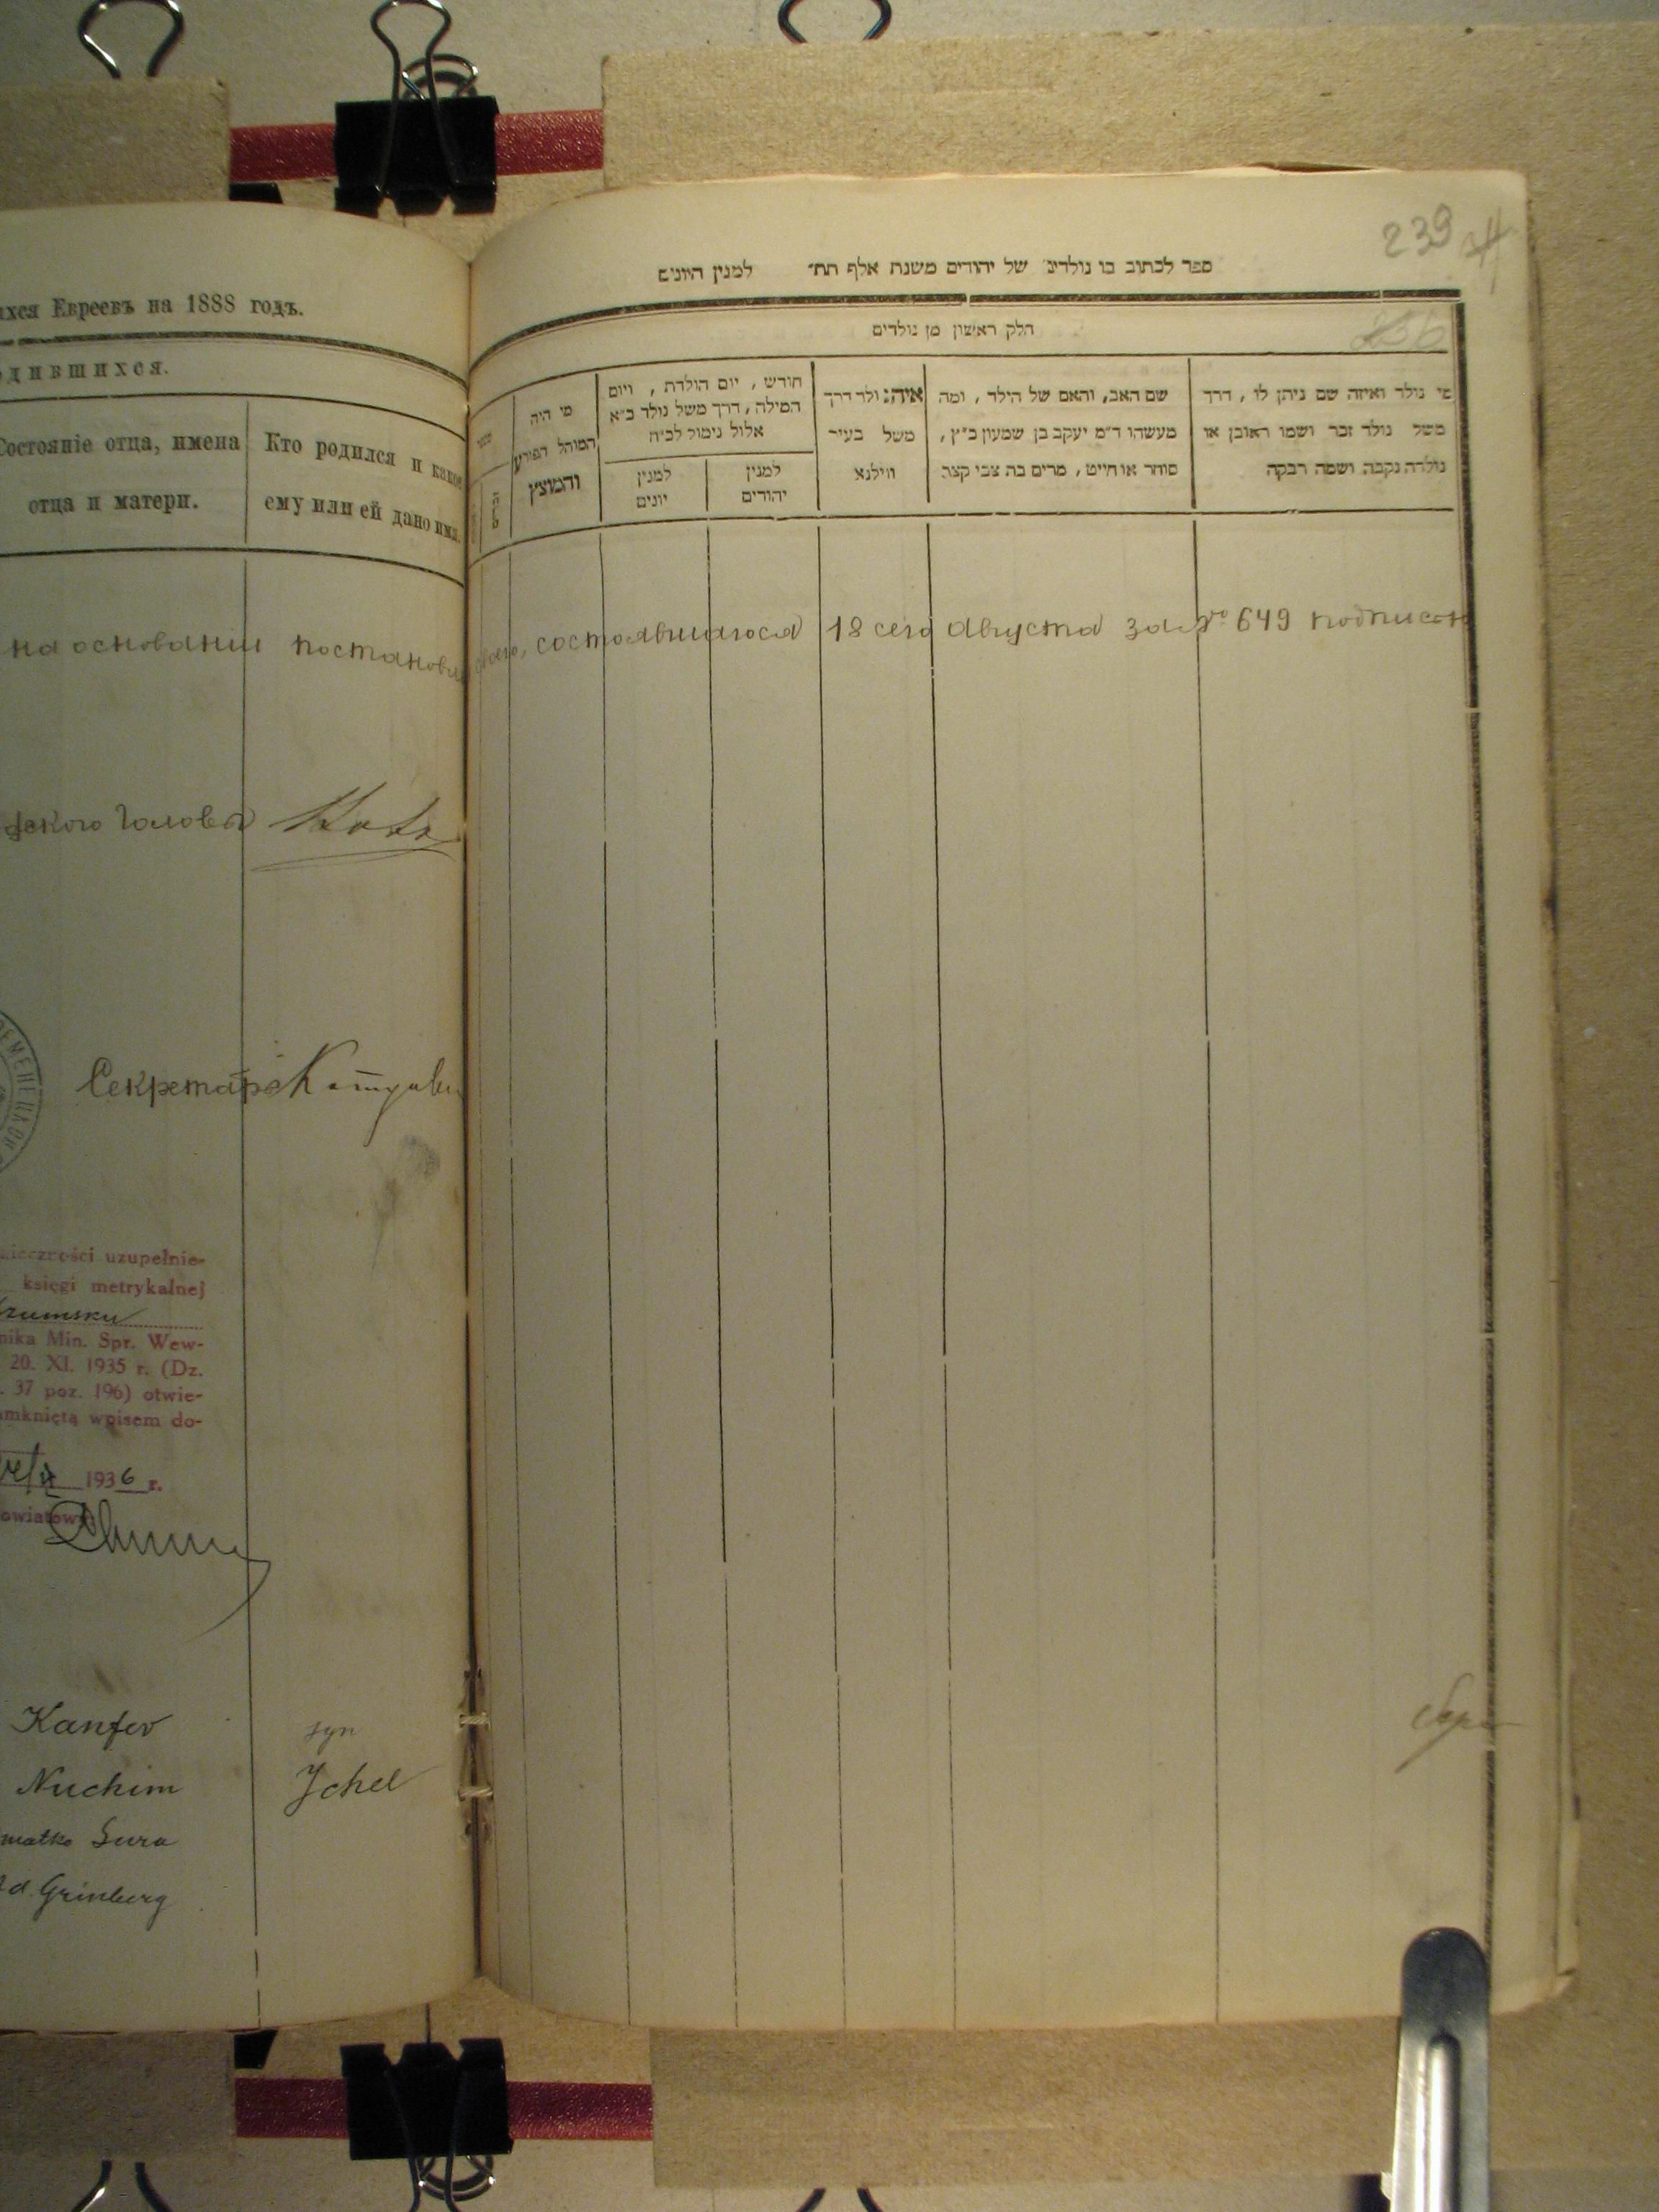 239
ихся Евреевъ на 1888 годъ.
дившихся.
Состояніе отца, имена
отца и матери.
Кто родился и какое
ему или ей дано имя.
на основаніи постановл
Секретарь
ности uzupełnie-
księgi metrykalnej
nika Min. Spr. Wew-
20. XI. 1935 r. (Dz.
37 poz. 196) otwie-
amkniętą wpisem do-
1936 r.
Kanfer
syn
Nuchim
Ichel
matka Sura
Grinberg
ספר לכתוב בו נולדים של יהודים משנת אלף תת״ למנין היונים
חלק ראשון מן נולדים
מי היה
המוהל הפורע
והמוצץ
חודש, יום הולדת, ויום
המילה, דרך משל נולד כ״א
אלול נימול לכ״ח
למנין
יונים
למנין
יהודים
איה: ולד דרך
משל בעיר
ווילנא
שם האב, והאם של הילד, ומה
מעשהו ד״מ יעקב בן שמעון כ״ץ,
סוחר או חייט, מרים בת צבי קצב
מי נולד ואיזה שם ניתן לו, דרך
משל נולד זכר ושמו ראובן או
נולדה נקבה ושמה רבקה
состоявшагося 18 сего Августа за № 649 подписом